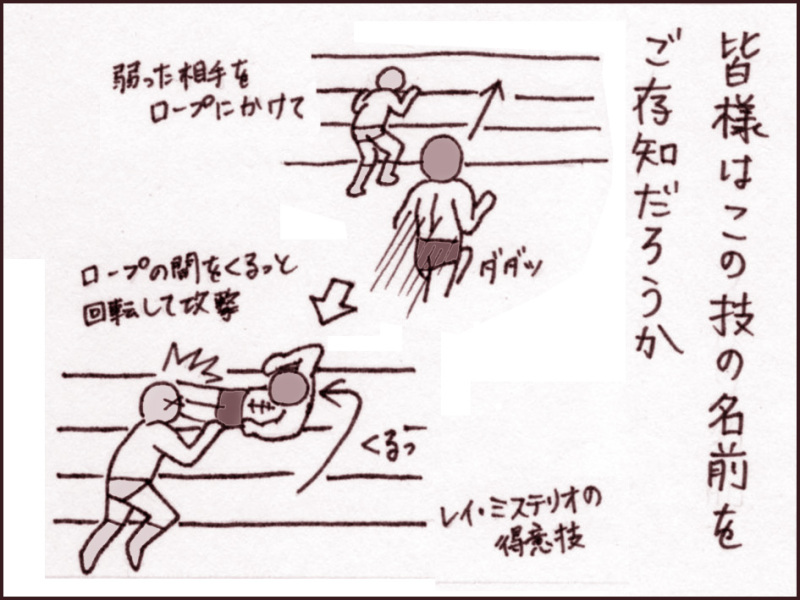 皆様はこの技の名前を
ご存知だろうか
弱った相手を
ロープにかけて
ダダッ
ロープの間をくるっと
回転して攻撃
くるっ
レイ・ミステリオの
得意技